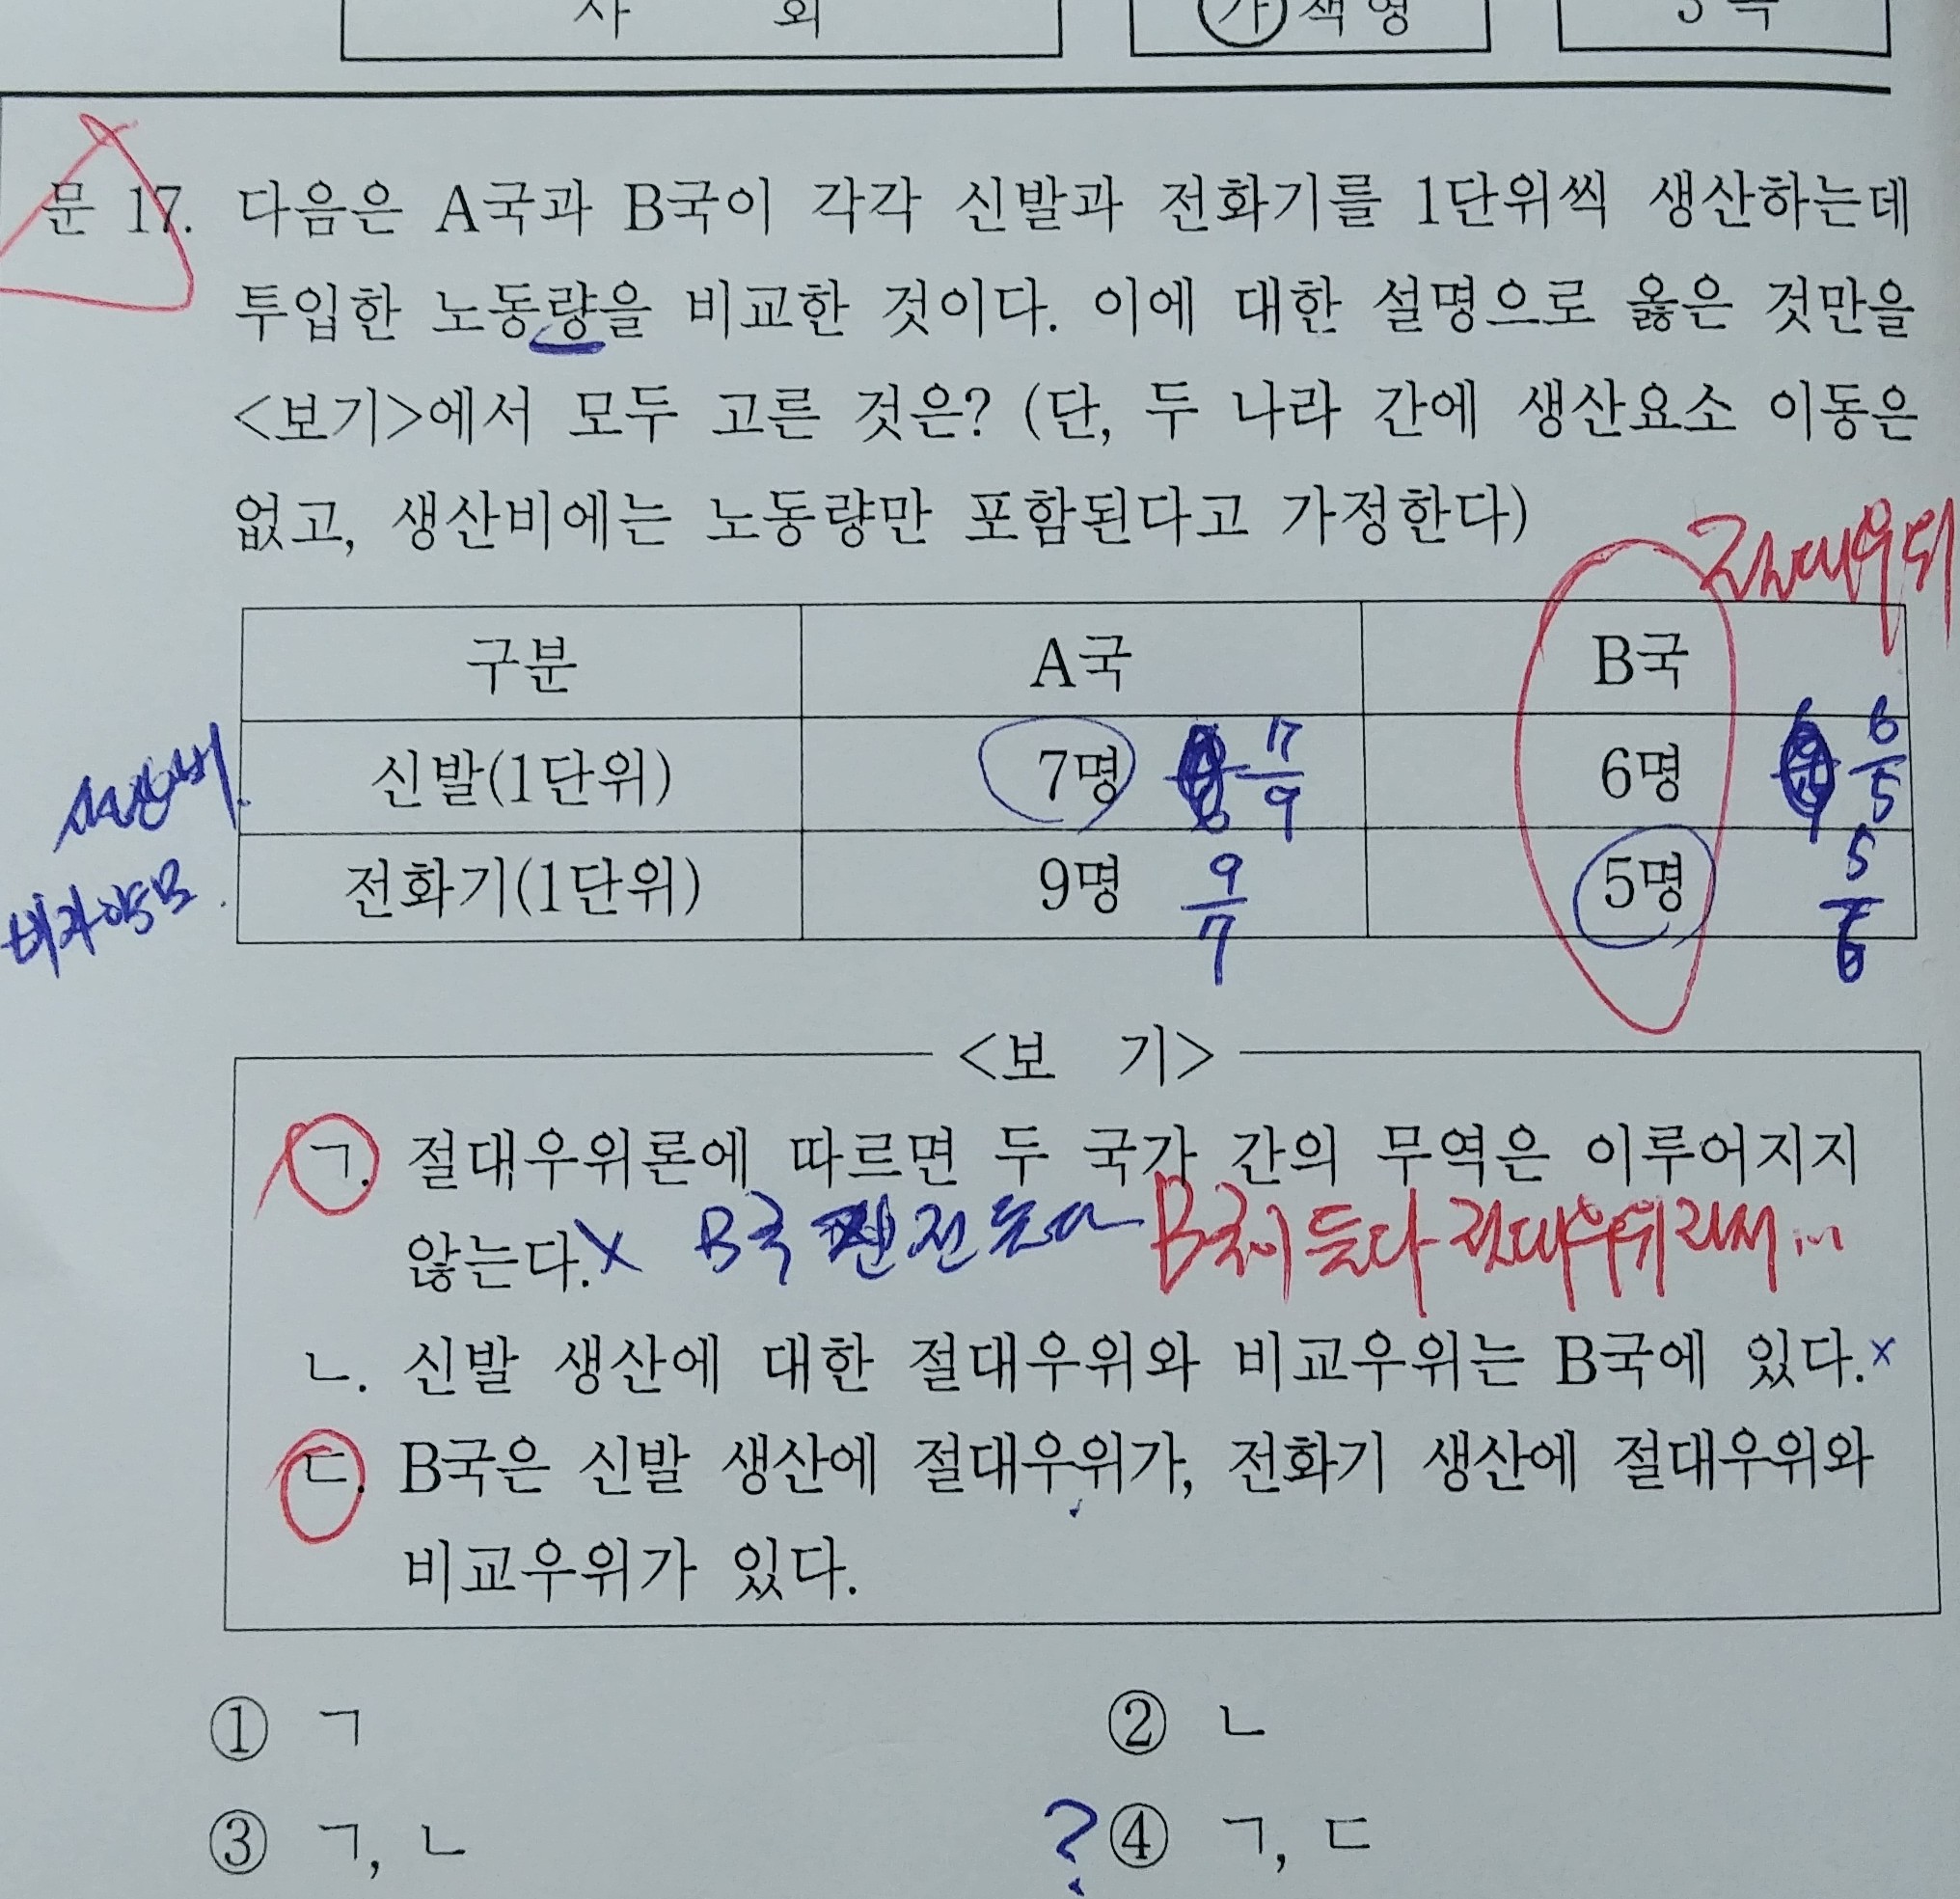 사 회
㉮ 책형
문 17. 다음은 A국과 B국이 각각 신발과 전화기를 1단위씩 생산하는데
투입한 노동량을 비교한 것이다. 이에 대한 설명으로 옳은 것만을
<보기>에서 모두 고른 것은? (단, 두 나라 간에 생산요소 이동은
없고, 생산비에는 노동량만 포함된다고 가정한다)
절대우위
구분 A국 B국
신발(1단위) 7명 7/9 6명 6/5
전화기(1단위) 9명 9/7 5명 5/6
<보 기>
ㄱ. 절대우위론에 따르면 두 국가 간의 무역은 이루어지지
않는다. X B국 전 둘다 B국이 둘다 절대우위라서...
ㄴ. 신발 생산에 대한 절대우위와 비교우위는 B국에 있다. x
ㄷ. B국은 신발 생산에 절대우위가, 전화기 생산에 절대우위와
비교우위가 있다.
① ㄱ ② ㄴ
③ ㄱ, ㄴ ? ④ ㄱ, ㄷ